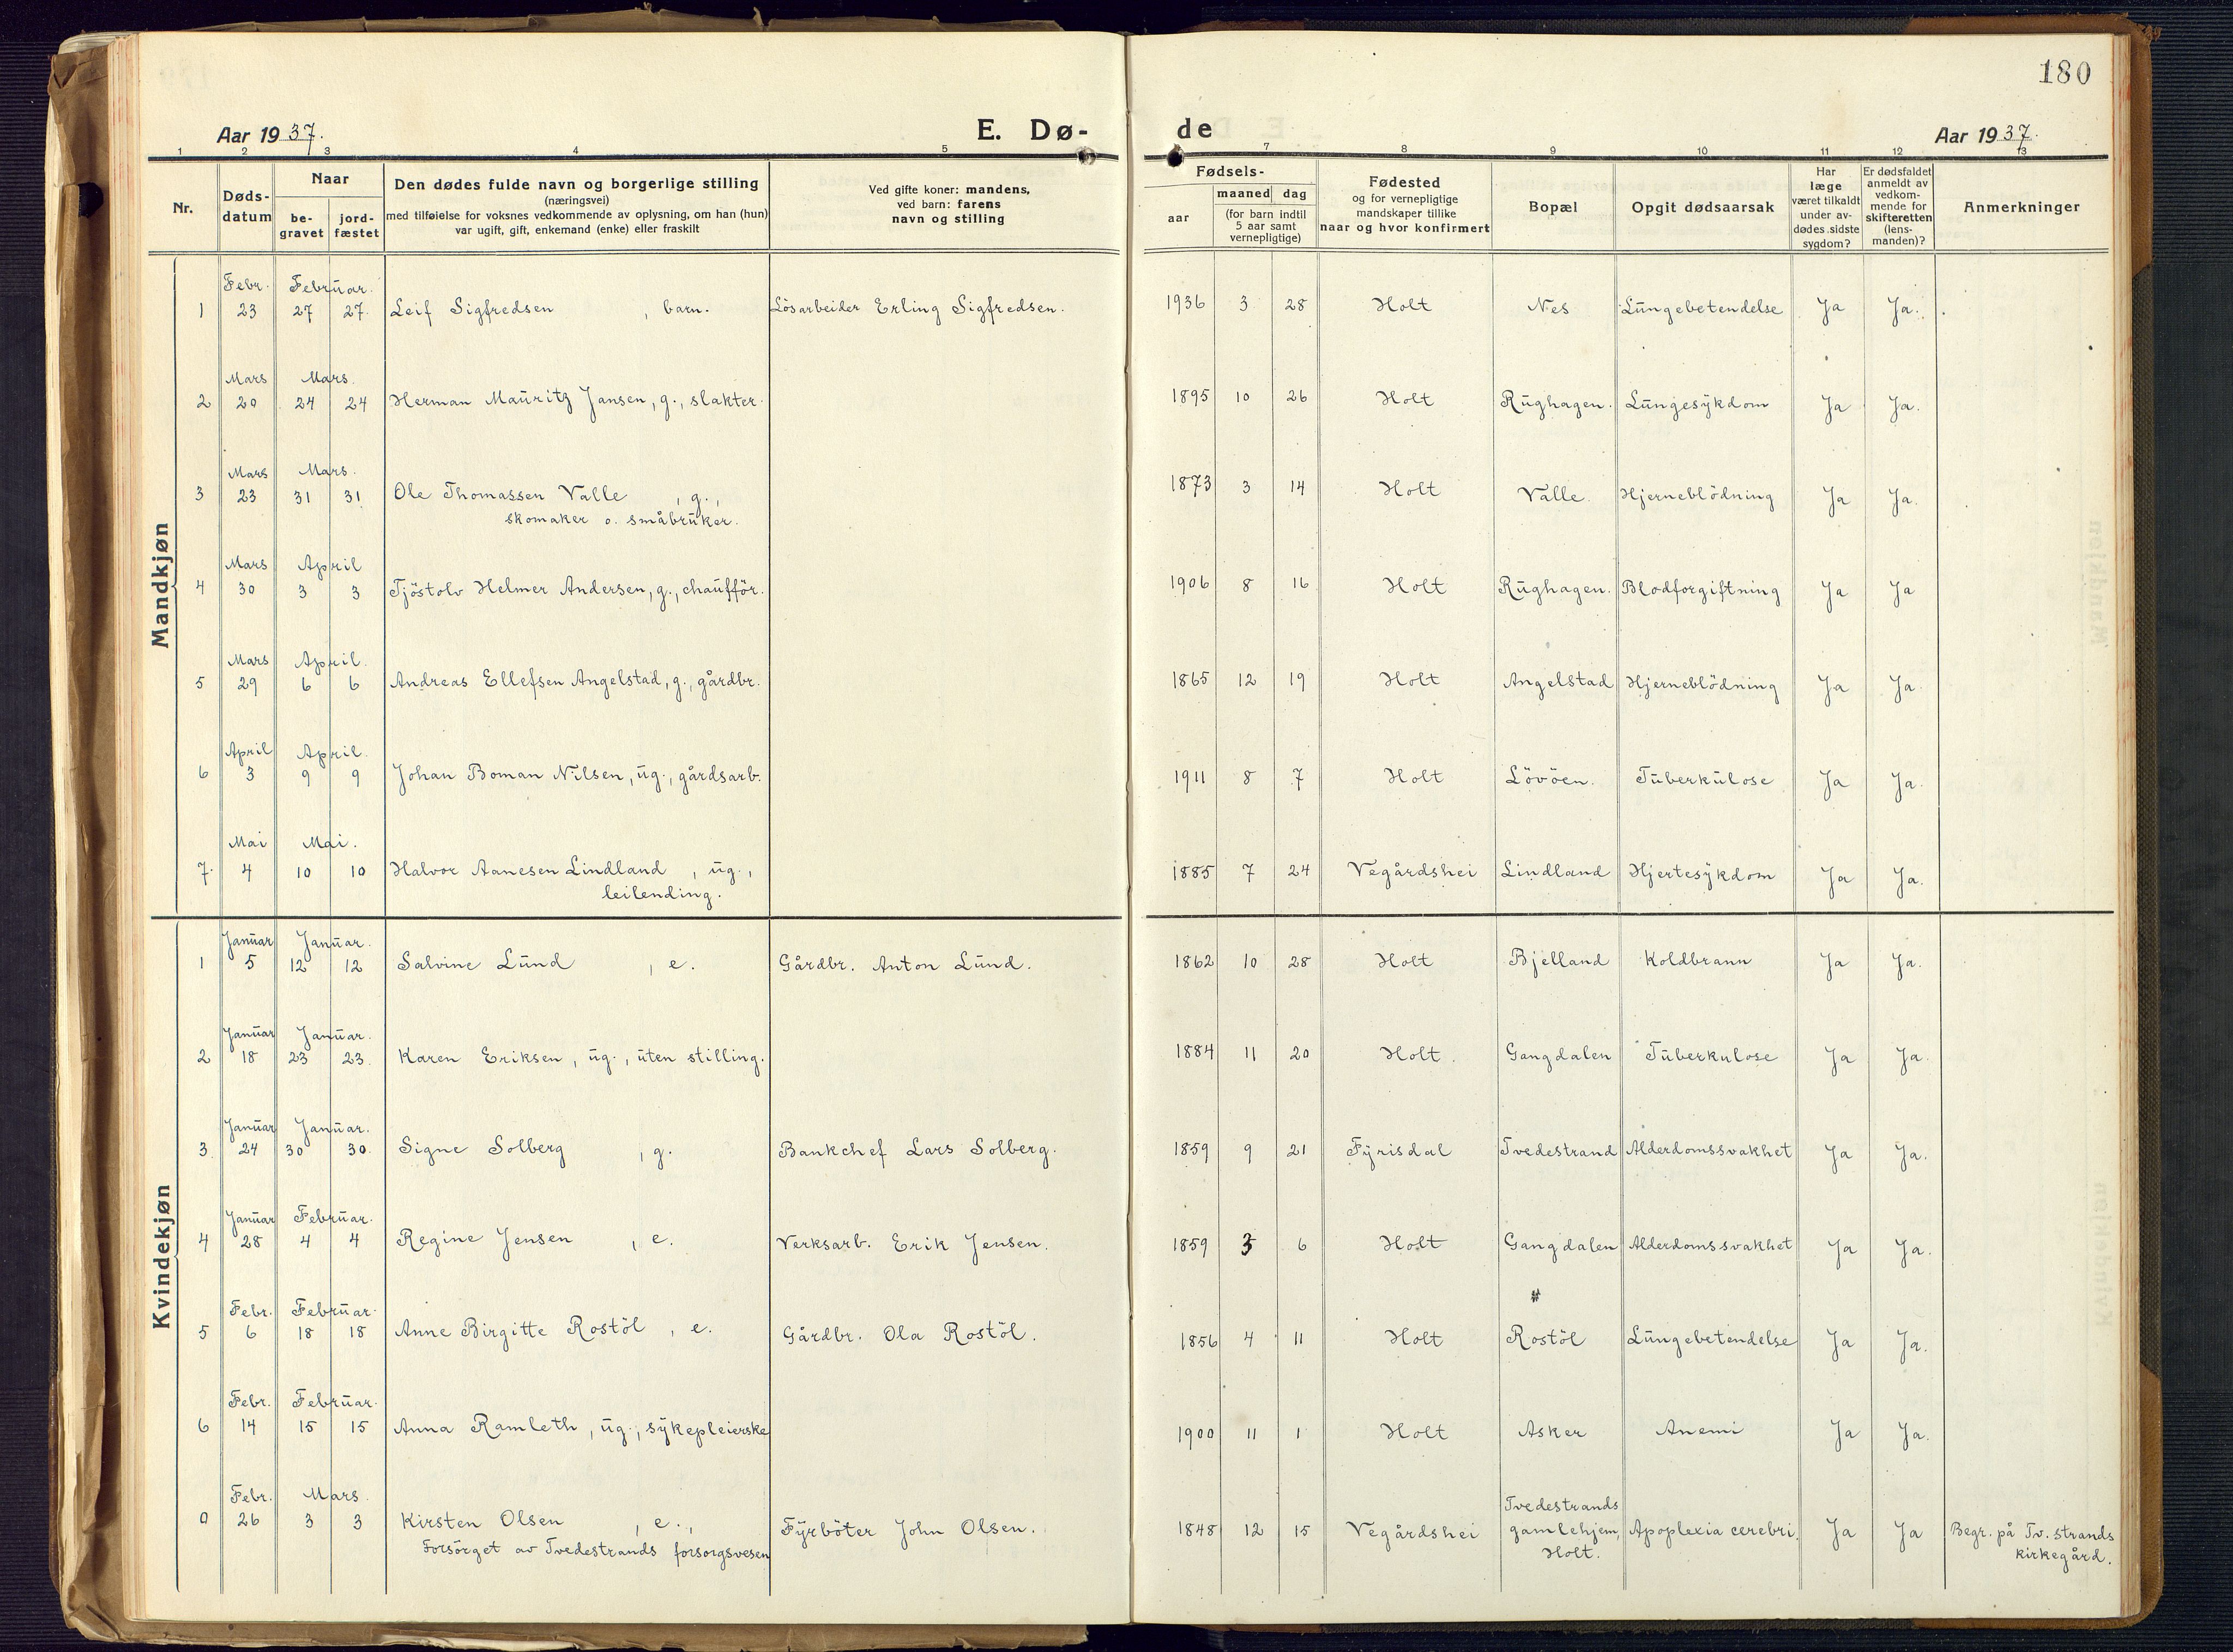 180
Aar 1937.
E. Dø-
de
Aar 1937.
1 2 3 4 5 7 8 9 10 11 12 13
Nr.
Døds-
datum
Naar
be-
gravet
jord-
fæstet
Den dødes fulde navn og borgerlige stilling
(næringsvei)
med tilføielse for voksnes vedkommende av oplysning, om han (hun)
var ugift, gift, enkemand (enke) eller fraskilt
Ved gifte koner: mandens,
ved barn: farens
navn og stilling
Fødsels-
aar
maaned dag
(for barn indtil
5 aar samt
vernepligtige)
Fødested
og for vernepligtige
mandskaper tillike
naar og hvor konfirmert
Bopæl
Opgit dødsaarsak
Har
læge
været tilkaldt
under av-
dødes sidste
sygdom?
Er dødsfaldet
anmeldt av
vedkom-
mende for
skifteretten
(lens-
manden)?
Anmerkninger
Mandkjøn
Febr. Februar.
1 23 27 27. Leif Sigfredsen , barn. Løsarbeider Erling Sigfredsen. 1936 3 28 Holt Nes Lungebetendelse Ja Ja.
Mars Mars.
2 20 24 24 Herman Mauritz Jansen, g., slakter. 1895 10 26 Holt Rughagen. Lungesykdom Ja Ja.
Mars Mars.
3 23 31 31 Ole Thomassen Valle , g., 1873 3 14 Holt Valle. Hjerneblödning Ja Ja.
skomaker o. småbruker.
Mars April
4 30 3 3 Tjöstolv Helmer Andersen, g., chaufför. 1906 8 16 Holt Rughagen. Blodforgiftning Ja Ja
Mars April.
5 29 6 6 Andreas Ellefsen Angelstad, g., gårdbr. 1865 12 19 Holt Angelstad Hjerneblödning Ja Ja.
April April.
6 3 9 9 Johan Boman Nilsen, ug., gårdsarb. 1911 8 7 Holt Lövöen. Tuberkulose Ja Ja.
Mai Mai.
7. 4 10 10 Halvor Aanesen Lindland , ug., 1885 7 24 Vegårdshei Lindland Hjertesykdom Ja Ja.
leilending.
Kvindekjøn
Januar Januar.
1 5 12 12 Salvine Lund , e. Gårdbr. Anton Lund. 1862 10 28 Holt Bjelland Koldbrann Ja Ja.
Januar Januar.
2 18 23 23. Karen Eriksen, ug., uten stilling. 1884 11 20 Holt. Gangdalen Tuberkulose Ja Ja.
Januar Januar.
3. 24 30 30. Signe Solberg , g. Bankchef Lars Solberg. 1859 9 21 Fyrisdal Tvedestrand Alderdomssvakhet Ja Ja.
Januar Februar.
4 28 4 4 Regine Jensen , e. Verksarb. Erik Jensen. 1859 3 6 Holt Gangdalen Alderdomssvakhet Ja Ja.
Febr. Februar.
5 6 18 18 Anne Birgitte Rostöl , e. Gårdbr. Ola Rostöl. 1856 4 11 Holt Rostöl Lungebetendelse Ja Ja.
Febr. Februar.
6 14 15 15 Anna Ramleth, ug., sykepleierske 1900 11 1 Holt Asker Anemi Ja Ja.
Febr. Mars. Tvedestrands
0 26 3 3 Kirsten Olsen , e., Fyrböter John Olsen. 1848 12 15 Vegårdshei gamlehjem, Apoplexia cerebri. Ja Ja Begr. på Tv. strands
Forsörget av Tvedestrands forsorgsvesen Holt. kirkegård.